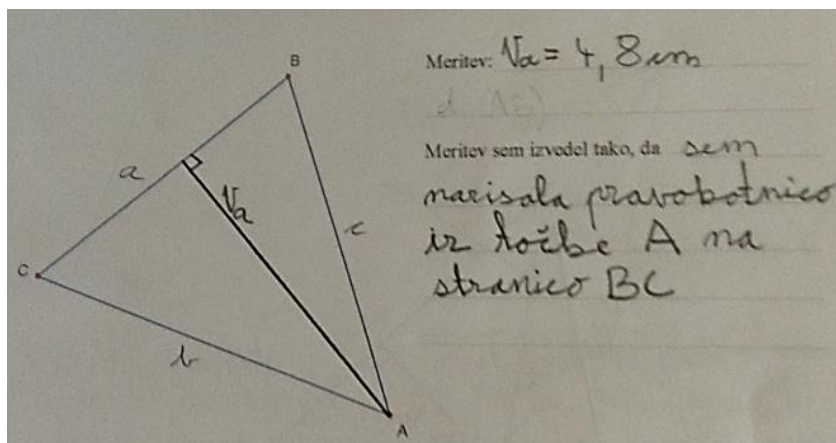 B
Meritev: Va = 4,8 cm
Meritev sem izvedel tako, da sem
a
narisala pravokotnico
Va
c
iz točke A na
C
stranico BC
b
A